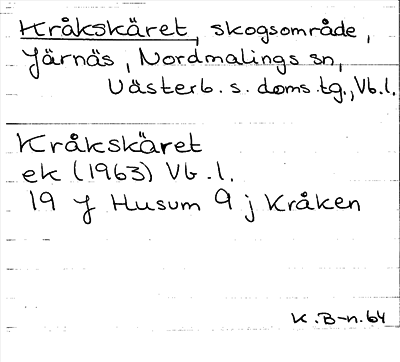 Kråkskäret, skogsområde,
Järnäs, Nordmalings sn,
Västerb. s. doms.tg., Vb.l.
Kråkskäret
ek (1963) Vb.l.
19 J Husum 9 j Kråken
K.B-n.64